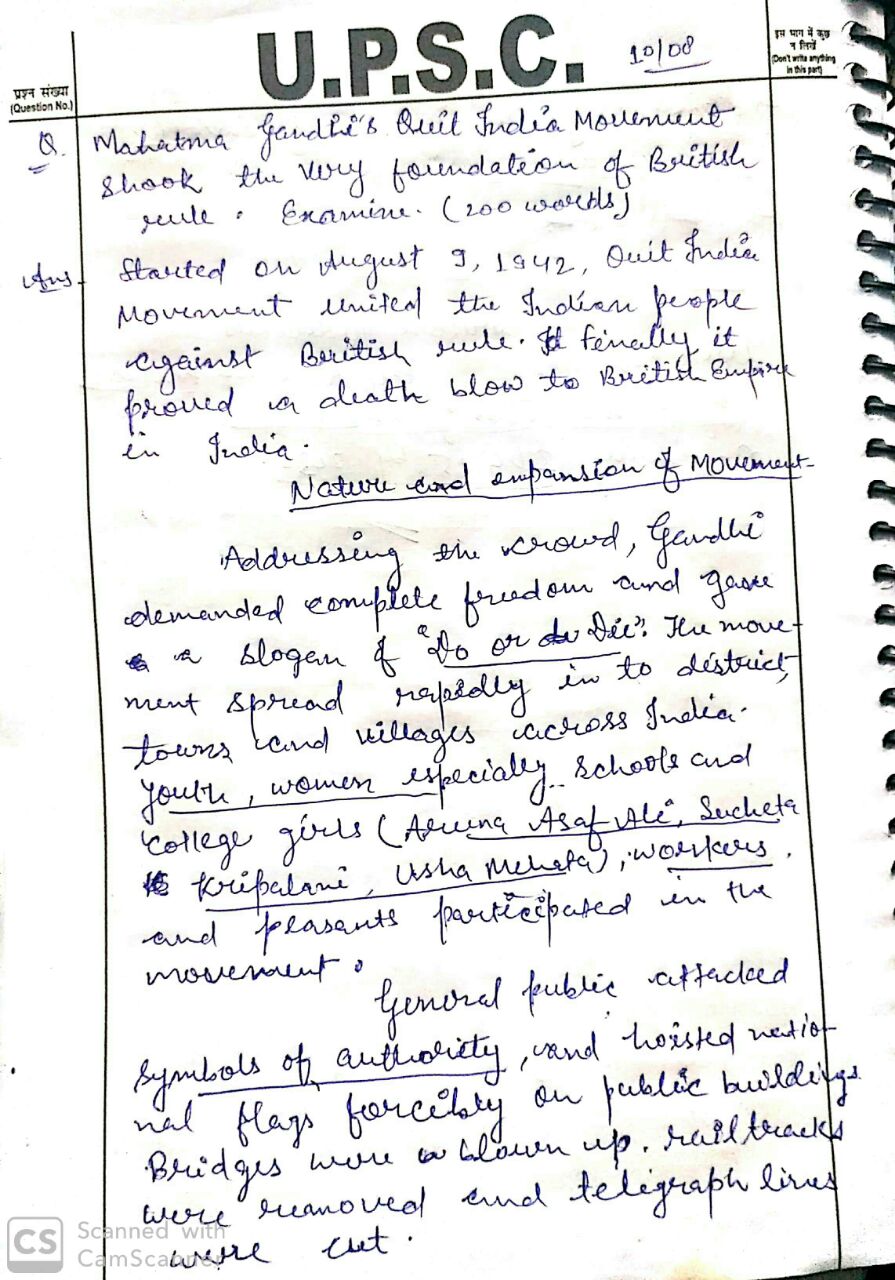 U.P.S.C.
10/08
इस भाग में कुछ
न लिखें
(Don't write anything
in this part)
प्रश्न संख्या
(Question No.)
Q. Mahatma Gandhi's Quit India Movement
shook the very foundation of British
rule. Examine. (200 words)
Ans Started on August 9, 1942, Quit India
Movement united the Indian people
against British rule. It finally, it
proved a death blow to British Empire
in India.
Nature and expansion of Movement
Addressing the crowd, Gandhi
demanded complete freedom and gave
a slogan of "Do or Die". The move-
ment spread rapidly in to district,
towns and villages across India.
Youth, women especially schools and
college girls (Aruna Asaf Ali, Sucheta
Kripalani, Usha Mehata), workers.
and peasants participated in the
movement.
General public attacked
symbols of authoriety, and hoisted natio-
nal flags forcibly on public buildings.
Bridges were blown up. rail tracks
were removed and telegraph lines
were cut.
CS Scanned with
CamScanner